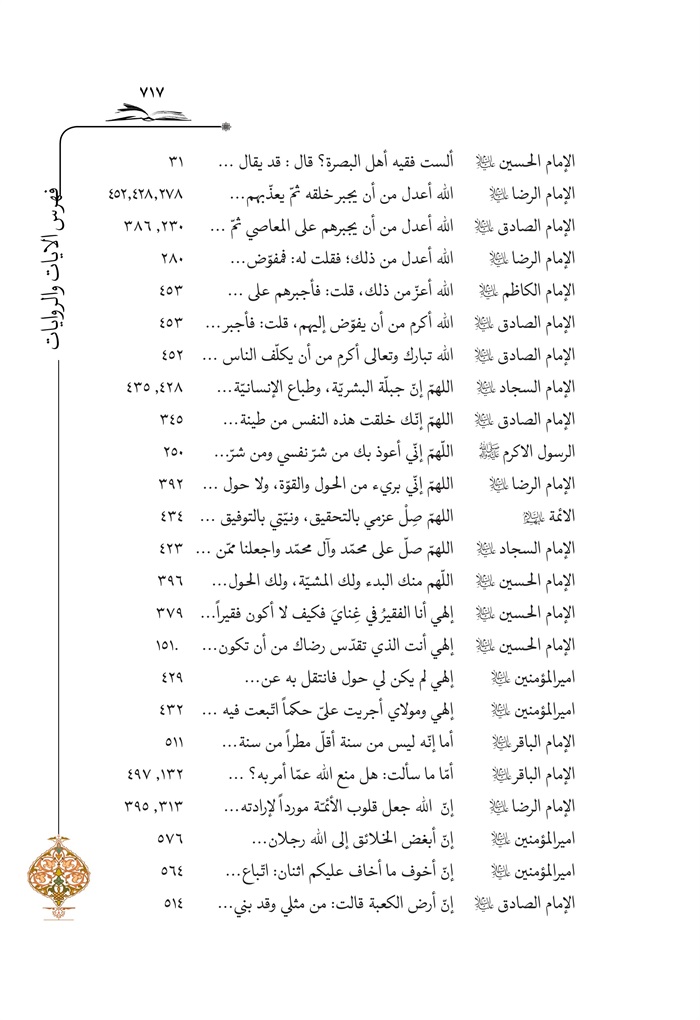 ٧١٧
فهرس الآيات والروايات
الإمام الحسين عليه السلام ألست فقيه أهل البصرة؟ قال : قد يقال ... ٣١
الإمام الرضا عليه السلام الله أعدل من أن يجبر خلقه ثمّ يعذّبهم... ٤٥٢,٤٢٨,٢٧٨
الإمام الصادق عليه السلام الله أعدل من أن يجبرهم على المعاصي ثمّ ... ٢٣٠, ٣٨٦
الإمام الرضا عليه السلام الله أعدل من ذلك؛ فقلت له: فمفوّض... ٢٨٠
الإمام الكاظم عليه السلام الله أعزّ من ذلك، قلت: فأجبرهم على ... ٤٥٣
الإمام الصادق عليه السلام الله أكرم من أن يفوّض إليهم، قلت: فأجبر... ٤٥٣
الإمام الصادق عليه السلام الله تبارك وتعالى أكرم من أن يكلّف الناس ... ٤٥٢
الإمام السجاد عليه السلام اللهمّ إنّ جبلّة البشريّة، وطباع الإنسانيّة... ٤٢٨, ٤٣٥
الإمام الصادق عليه السلام اللهمّ إنّك خلقت هذه النفس من طينة... ٣٤٥
الرسول الاكرم صلى الله عليه وآله اللّهمّ إنّي أعوذ بك من شرّ نفسي ومن شرّ... ٢٥٠
الإمام الرضا عليه السلام اللهمّ إنّي بريء من الحول والقوّة، ولا حول ... ٣٩٢
الائمة عليهم السلام اللهمّ صِلْ عزمي بالتحقيق، ونيّتي بالتوفيق ... ٤٣٤
الإمام السجاد عليه السلام اللهمّ صلّ على محمّد وآل محمّد واجعلنا ممّن ... ٤٢٣
الإمام الحسين عليه السلام اللّهم منك البدء ولك المشيّة، ولك الحول... ٣٩٦
الإمام الحسين عليه السلام إلهي أنا الفقيرُ في غِنايَ فكيف لا أكون فقيراً... ٣٧٩
الإمام الحسين عليه السلام إلهي أنت الذي تقدّس رضاك من أن تكون... ١٥١.
اميرالمؤمنين عليه السلام إلهي لم يكن لي حول فانتقل به عن... ٤٢٩
اميرالمؤمنين عليه السلام إلهي ومولاي أجريت عليّ حكماً اتّبعت فيه ... ٤٣٢
الإمام الباقر عليه السلام أما إنّه ليس من سنة أقلّ مطراً من سنة... ٥١١
الإمام الباقر عليه السلام أمّا ما سألت: هل منع الله عمّا أمر به؟ ... ١٣٢, ٤٩٧
الإمام الرضا عليه السلام إنّ الله جعل قلوب الأئمّة مورداً لإرادته... ٣١٣, ٣٩٥
اميرالمؤمنين عليه السلام إنّ أبغض الخلائق إلى الله رجلان... ٥٧٦
اميرالمؤمنين عليه السلام إنّ أخوف ما أخاف عليكم اثنان: اتّباع... ٥٦٤
الإمام الصادق عليه السلام إنّ أرض الكعبة قالت: من مثلي وقد بني... ٥١٤